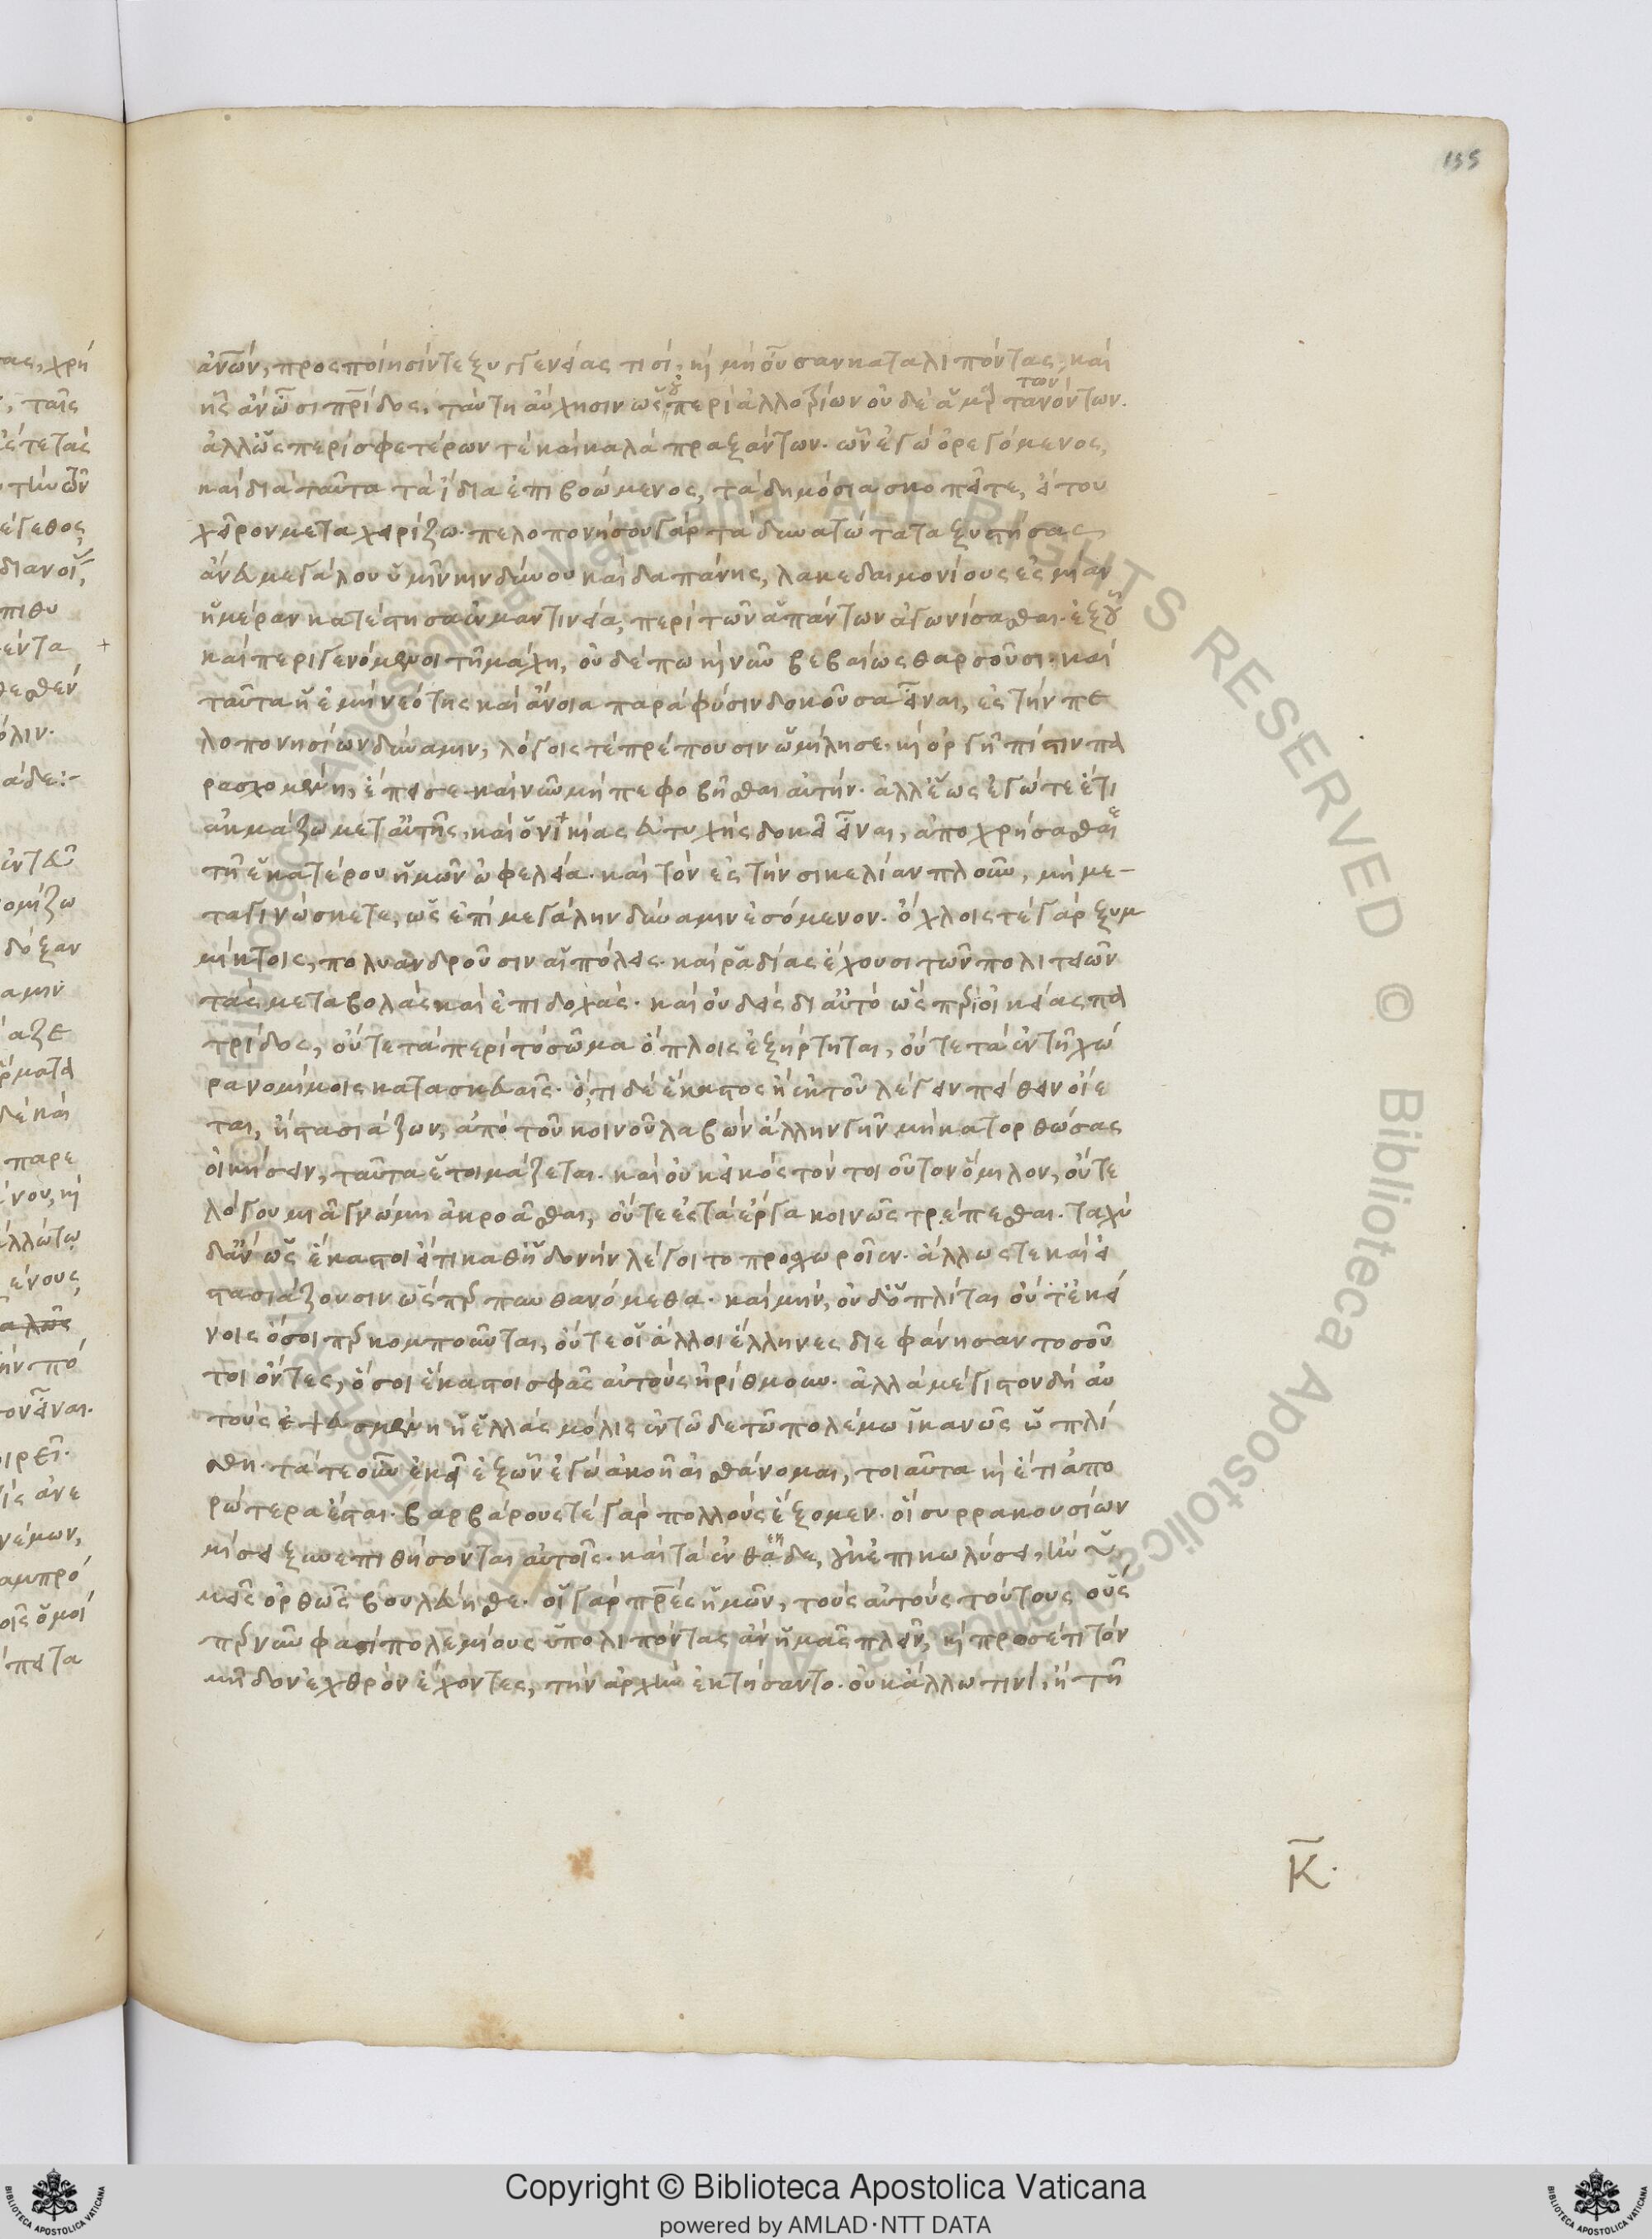 135
ἀνῶν, προσποίησίν τε ξυγγενείας τισὶ, κὴ μὴ οὖσαν καταλιπόντας, καὶ
ἧς ἂν ὦσι πρίδος, ταύτη αὔχησιν ὡς οὐ περὶ ἀλλοτρίων οὐδὲ ἁμαρτανόντων.
ἀλλ' ὡς περὶ σφετέρων τὲ καὶ καλὰ πραξάντων. ὧν ἐγὼ ὀρεγόμενος,
καὶ διὰ ταῦτα τὰ ἴδια ἐπιβοώμενος, τὰ δημόσια σκοπεῖτε, εἴ του
χεῖρον μεταχειρίζω. πελοπονήσου γὰρ τὰ δυνατώτατα ξυστήσας
ἄνευ μεγάλου ὑμῖν κινδύνου καὶ δαπάνης, λακεδαιμονίους ἐς μίαν
ἡμέραν κατέστησα ἐν μαντινεία, περὶ τῶν ἁπάντων ἀγωνίσασθαι. ἐξ οὗ
καὶ περιγενόμενοι τῆ μάχη, οὐδέπω κὴ νῦν βεβαίως θαρσοῦσι. καὶ
ταῦτα ἡ ἐμὴ νεότης καὶ ἄνοια παρὰ φύσιν δοκοῦσα εἶναι, ἐς τὴν πε
λοπονησίων δύναμιν, λόγοις τὲ πρέπουσιν ὡμίλησε. κὴ ὀργῆ πίστιν πα
ρασχομένη, ἔπεισε. καὶ νῦν μὴ πεφοβῆσθαι αὐτήν. ἀλλ' ἕως ἐγώ τε ἔτι
ἀκμάζω μετ' αὐτῆς, καὶ ὁ νικίας εὐτυχὴς δοκεῖ εἶναι, ἀποχρήσασθαι
τῆ ἑκατέρου ἡμῶν ὠφελεία. καὶ τὸν ἐς τὴν σικελίαν πλοῦν, μὴ με-
ταγινώσκετε, ὡς ἐπὶ μεγάλην δύναμιν ἐσόμενον. ὄχλοις τὲ γὰρ ξυμ
μίκτοις, πολυανδροῦσιν αἱ πόλεις. καὶ ῥαδίας ἔχουσι τῶν πολιτειῶν
τὰς μεταβολὰς καὶ ἐπιδοχάς. καὶ οὐδεὶς δι' αὐτὸ ὡς περὶ οἰκείας πα
τρίδος, οὔτε τὰ περὶ τὸ σῶμα ὅπλοις ἐξήρτηται, οὔτε τὰ ἐν τῆ χώ
ρα νομίμοις κατασκευαῖς. ὅ,τι δὲ ἕκαστος ἢ ἐκ τοῦ λέγειν πείθειν οἴε
ται, ἢ στασιάζων, ἀπὸ τοῦ κοινοῦ λαβὼν ἄλλην γῆν μὴ κατορθώσας
οἰκήσειν, ταῦτα ἑτοιμάζεται. καὶ οὐκ εἰκὸς τὸν τοιοῦτον ὅμιλον, οὔτε
λόγου μιᾶ γνώμη ἀκροᾶσθαι, οὔτε ἐς τὰ ἔργα κοινῶς τρέπεσθαι. ταχὺ
δ' ἂν ὡς ἕκαστοι εἴ τι καθ' ἡδονὴν λέγοιτο προσχωροῖεν. ἄλλως τε καὶ εἰ
στασιάζουσιν ὡς περ πυνθανόμεθα. καὶ μὴν, οὐδ' ὁπλῖται οὔτ' ἐκεί
νοις ὅσοι περ κομποῦνται, οὔτε οἱ ἄλλοι ἕλληνες διεφάνησαν τοσοῦ
τοι ὄντες, ὅσοι ἕκαστοι σφᾶς αὐτοὺς ἠρίθμουν. ἀλλὰ μέγιστον δὴ αὐ
τοὺς ἐψευσμένη ἡ ἑλλὰς μόλις ἐν τῶδε τῶ πολέμω ἱκανῶς ὡπλί
σθη. τά τε οὖν ἐκεῖ ἐξ ὧν ἐγὼ ἀκοῆ αἰσθάνομαι, τοιαῦτα κὴ ἔτι ἀπο
ρώτερα ἔσται. βαρβάρους τὲ γὰρ πολλοὺς ἕξομεν. οἳ συρρακουσίων
μίσει ξυνεπιθήσονται αὐτοῖς. καὶ τὰ ἐνθάδε, οὐκ ἐπικωλύσει, ἢν ὑ
μεῖς ὀρθῶς βουλεύησθε. οἱ γὰρ πρες ἡμῶν, τοὺς αὐτοὺς τούτους οὕς
περ νῦν φασὶ πολεμίους ὑπολιπόντας ἂν ἡμᾶς πλεῖν, κὴ προσέτι τὸν
μῆδον ἐχθρὸν ἔχοντες, τὴν ἀρχὴν ἐκτήσαντο. οὐκ ἄλλω τινὶ, ἢ τῆ
Κ.
Copyright © Biblioteca Apostolica Vaticana
powered by AMLAD·NTT DATA